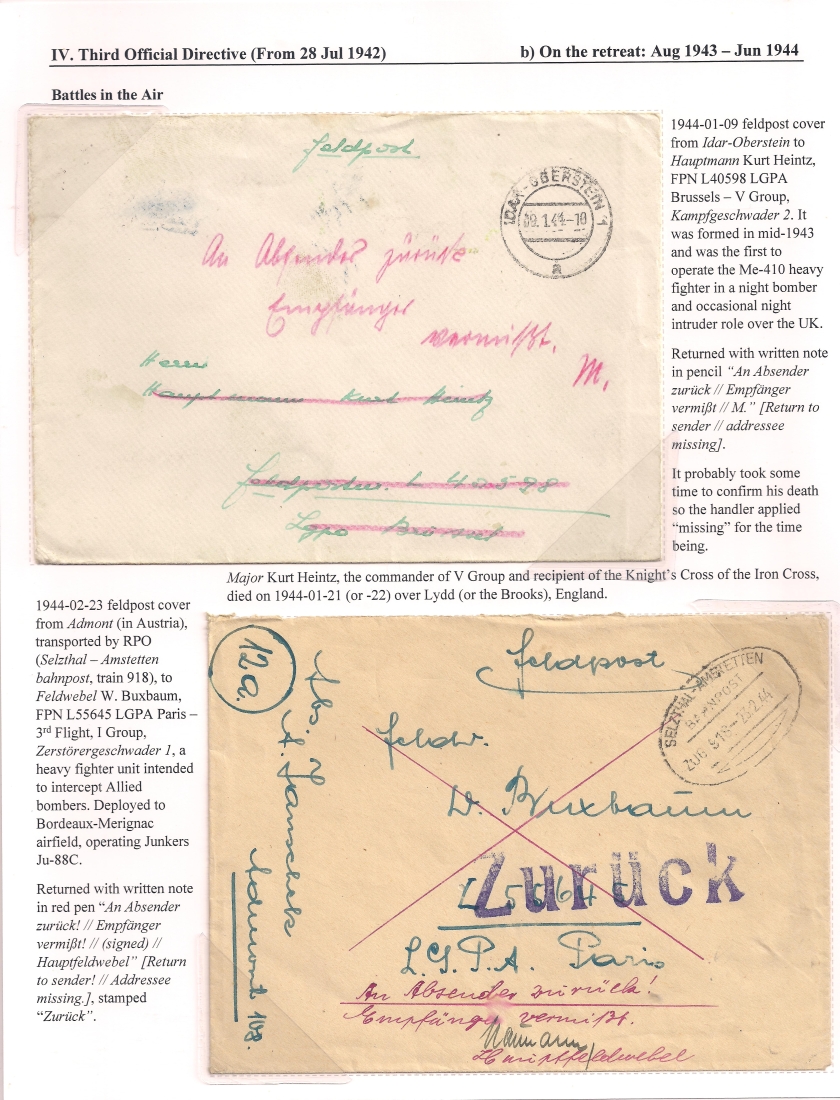 IV. Third Official Directive (From 28 Jul 1942)
b) On the retreat: Aug 1943 – Jun 1944
Battles in the Air
Feldpost
IDAR-OBERSTEIN 1
09.1.44-10
a
An Absender zurück
Empfänger
vermißt.
M.
Herrn
Hauptmann Kurt Heintz
Feldpostnr. L 40598
Lgpa Brüssel
1944-01-09 feldpost cover
from Idar-Oberstein to
Hauptmann Kurt Heintz,
FPN L40598 LGPA
Brussels – V Group,
Kampfgeschwader 2. It
was formed in mid-1943
and was the first to
operate the Me-410 heavy
fighter in a night bomber
and occasional night
intruder role over the UK.
Returned with written note
in pencil “An Absender
zurück // Empfänger
vermißt // M.” [Return to
sender // addressee
missing].
It probably took some
time to confirm his death
so the handler applied
“missing” for the time
being.
Major Kurt Heintz, the commander of V Group and recipient of the Knight’s Cross of the Iron Cross,
died on 1944-01-21 (or -22) over Lydd (or the Brooks), England.
1944-02-23 feldpost cover
from Admont (in Austria),
transported by RPO
(Selzthal – Amstetten
bahnpost, train 918), to
Feldwebel W. Buxbaum,
FPN L55645 LGPA Paris –
3rd Flight, I Group,
Zerstörergeschwader 1, a
heavy fighter unit intended
to intercept Allied
bombers. Deployed to
Bordeaux-Merignac
airfield, operating Junkers
Ju-88C.
Returned with written note
in red pen “An Absender
zurück! // Empfänger
vermißt! // (signed) //
Hauptfeldwebel” [Return
to sender! // Addressee
missing.], stamped
“Zurück”.
12a.
Feldpost
SELZTHAL-AMSTETTEN
BAHNPOST
ZUG 918-23.2.44
Feldw.
W. Buxbaum
L 55645
Zurück
L.G.P.A. Paris
An Absender zurück!
Empfänger vermißt.
Naumann
Hauptfeldwebel
Abs.
Admont 108.